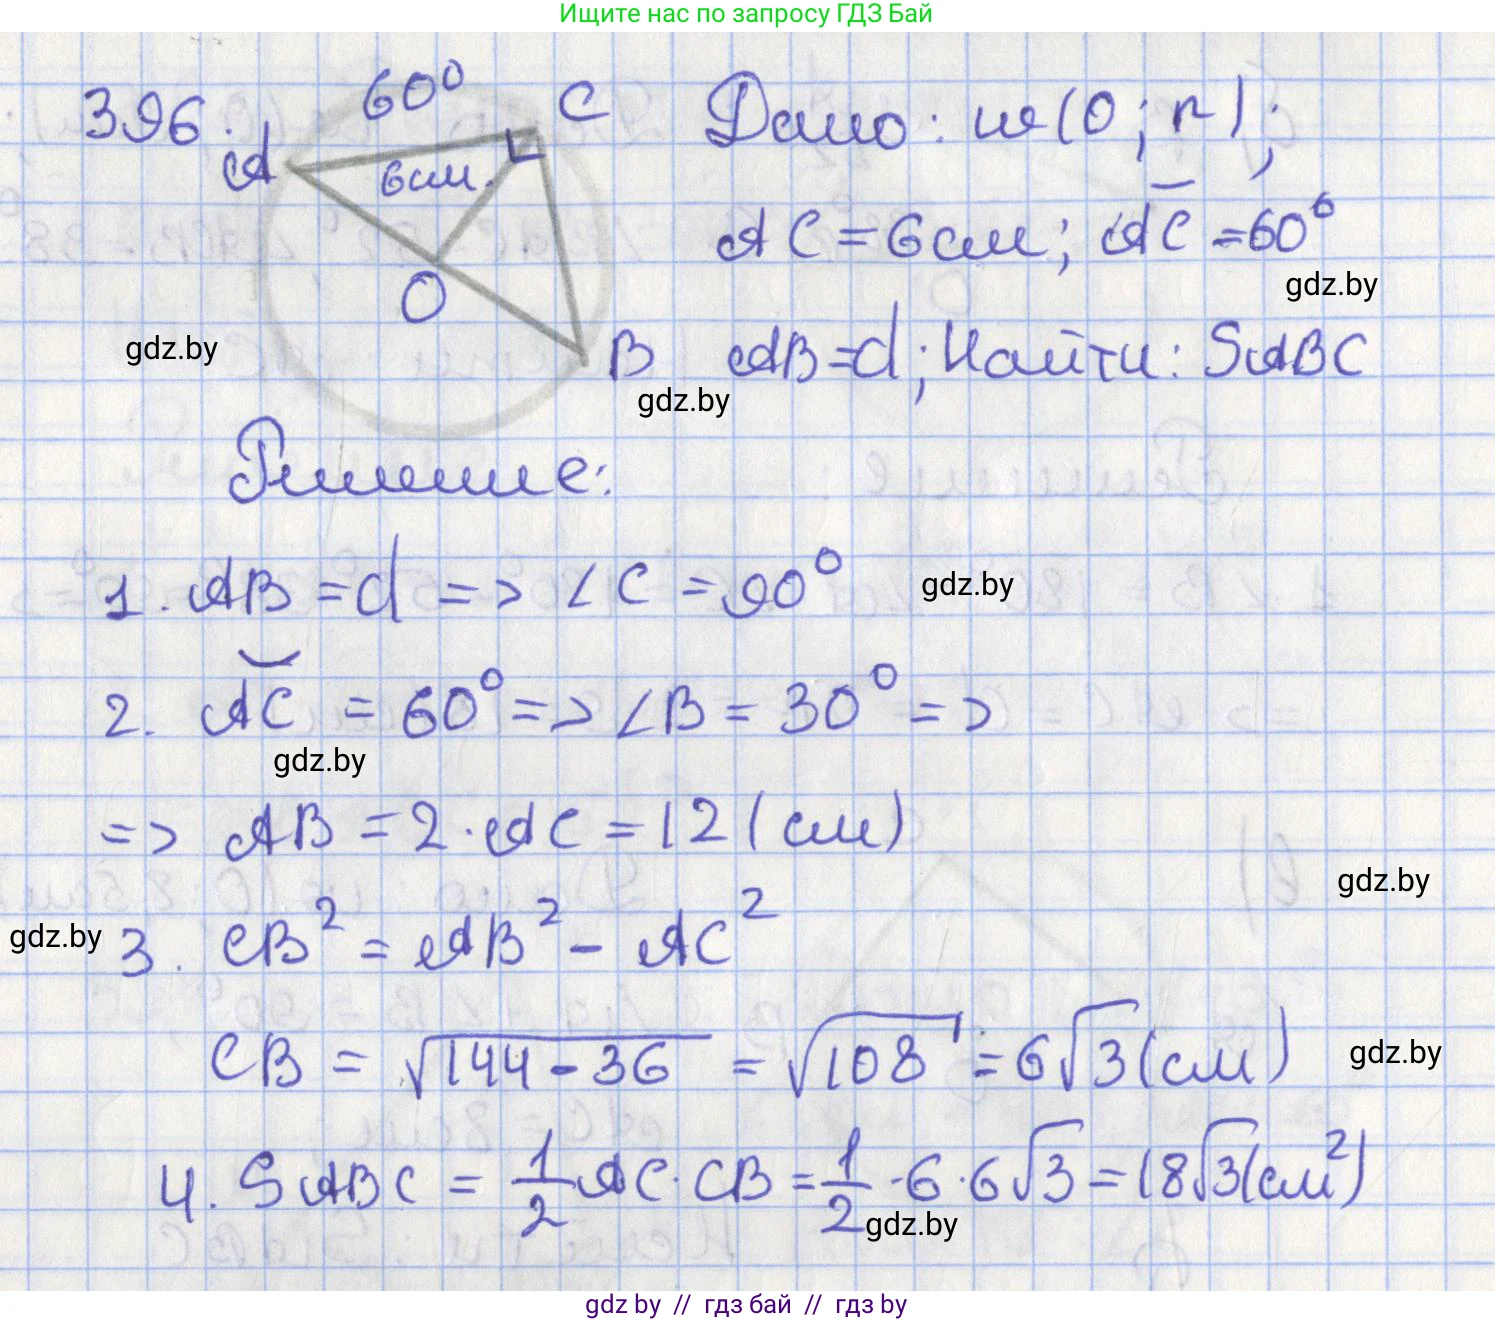 Ищите нас по запросу ГДЗ Бай
396.
60⁰
A
C
6см.
O
B
Дано: w(O; r);
AC = 6см; AC = 60⁰
gdz.by
gdz.by
AB = d; Найти: SABC
gdz.by
Решение:
1. AB = d => ∠C = 90⁰
gdz.by
2. AC = 60⁰ => ∠B = 30⁰ =>
gdz.by
=> AB = 2·AC = 12 (см)
gdz.by
gdz.by
3. CB² = AB² - AC²
CB = √144-36 = √108 = 6√3 (см)
gdz.by
4. SABC = 1/2 AC·CB = 1/2 ·6·6√3 = 18√3(см²)
gdz.by
gdz by // гдз бай // гдз by